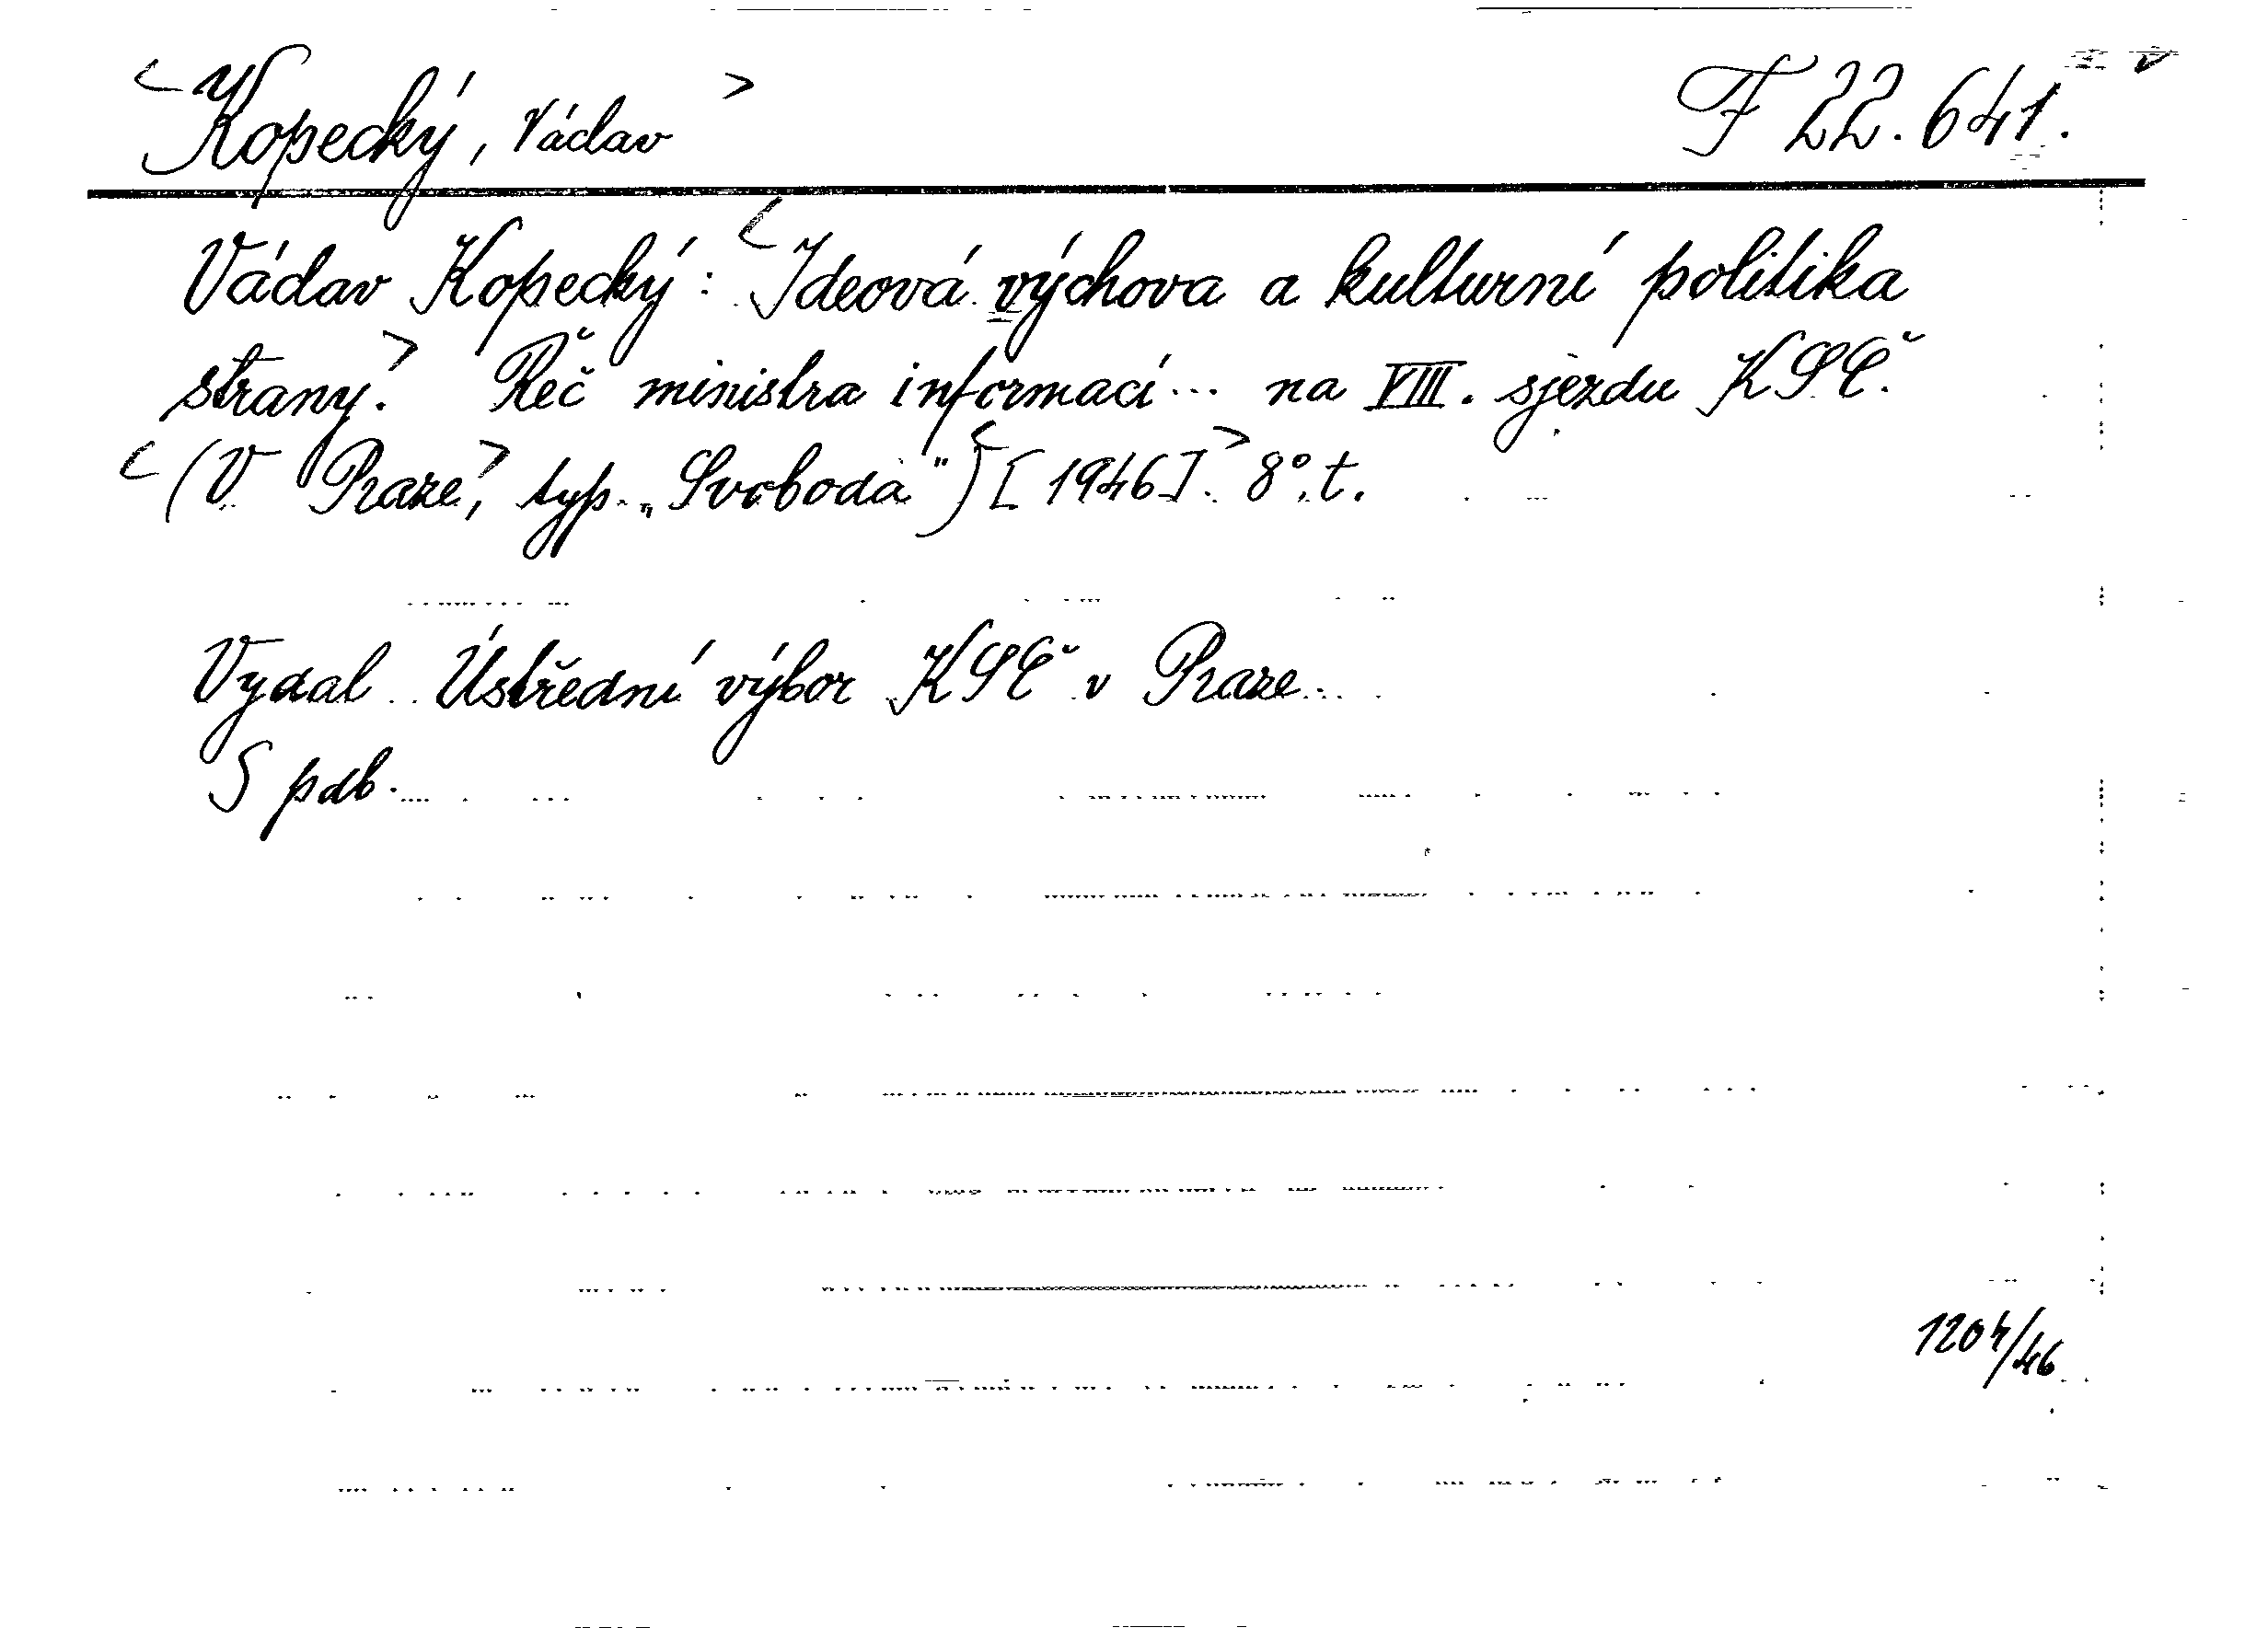 <Kopecký, Václav> F 22.641.
Václav Kopecký: <Ideová výchova a kulturní politika
strany.> Řeč ministra informací... na VIII. sjezdu KSČ.
<(V Praze,> typ. „Svoboda") <[1946].> 8°. t.
Vydal Ústřední výbor KSČ v Praze...
S pdb.
1204/46